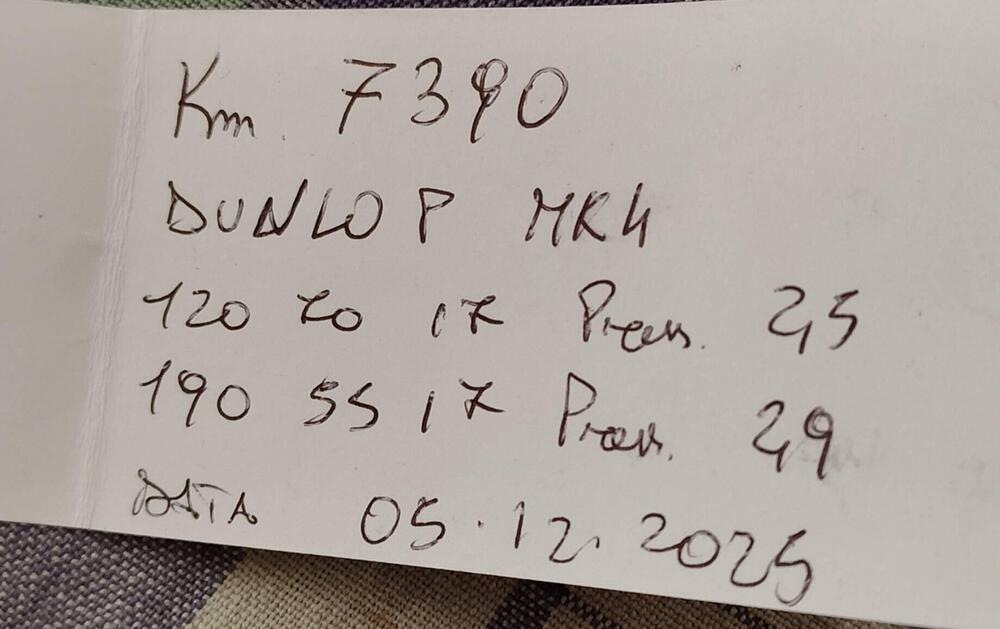 Km. 7390
DUNLOP MK4
120 70 17 Press. 2,5
190 55 17 Press. 2,9
DATA 05.12.2025